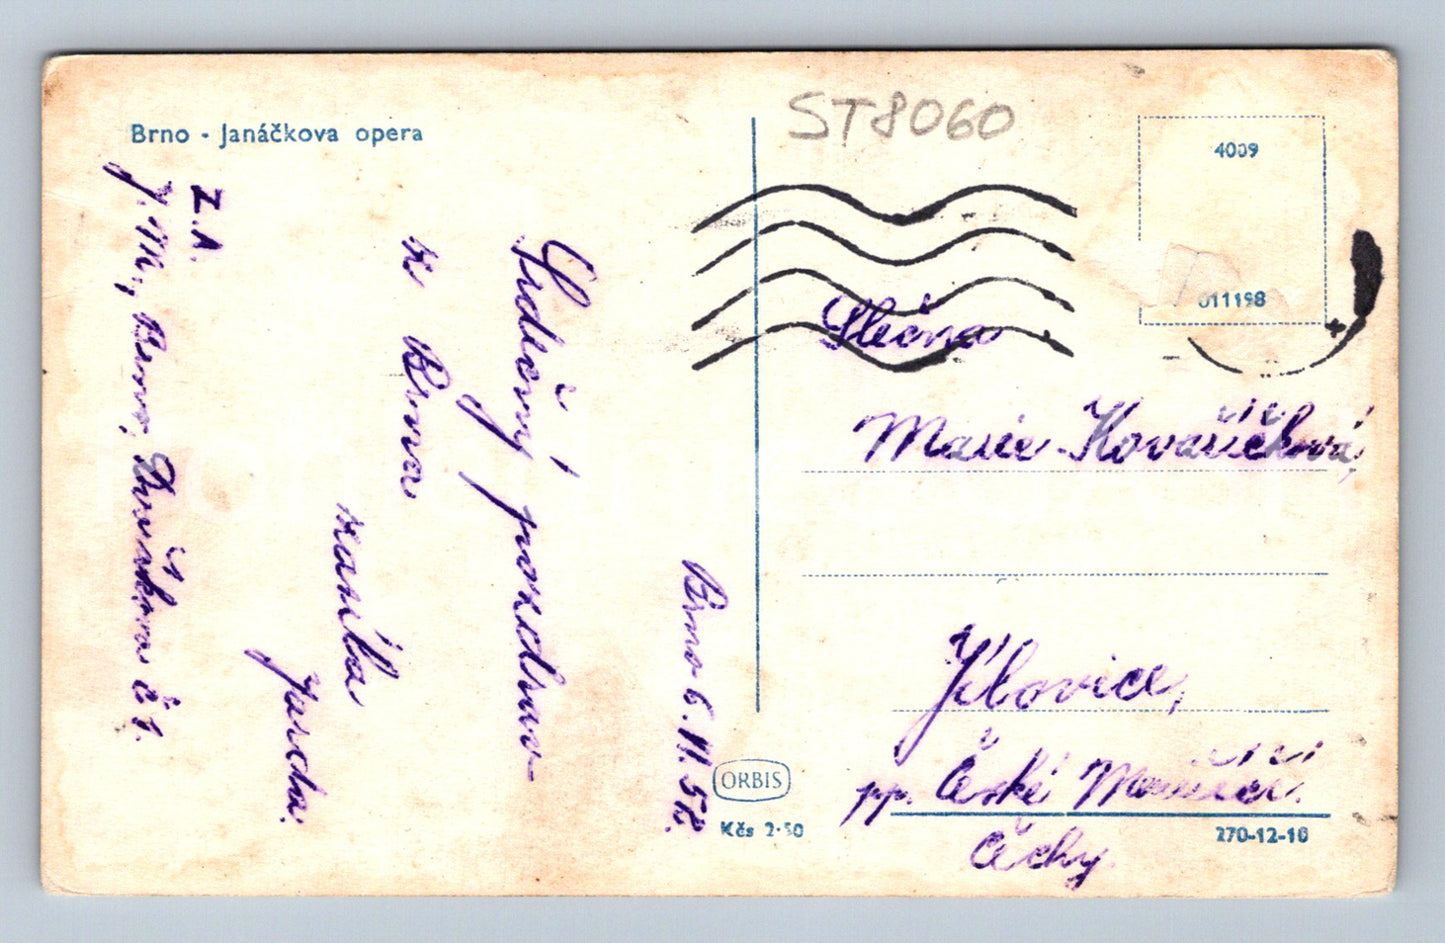 Brno - Janáčkova opera
ST8060
4009
011198
Brno 6. VI. 52.
Srdečný pozdrav
z Brna
Jarda.
Z.A.
J. M., Brno, č 1.
Slečna
Marie Kovaříčková,
Jílovice,
pp. České
Čechy
ORBIS
Kčs 2·50
270-12-18